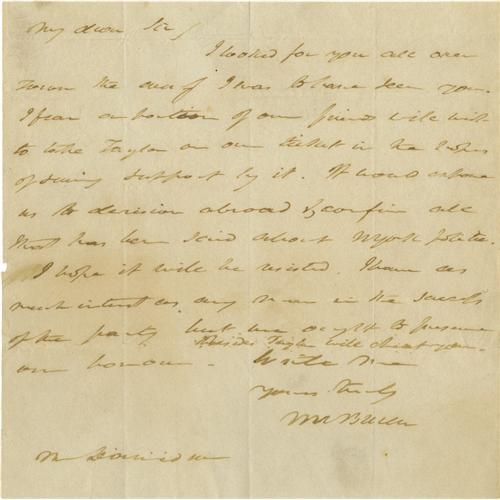 My dear Sir,
I looked for you all over
town the eveg I was to have seen you.
I fear a portion of our friends will wish
to take Taylor on our ticket in the hopes
of giving support by it. It would expose
us to derision abroad & confirm all
that has been said about NYork politics.
I hope it will be resisted. I have as
much interest as any man in the success
of the party but we ought to preserve
our honour. Besides Taylor will cheat you.
Write me
yours truly
MVBuren
Mr